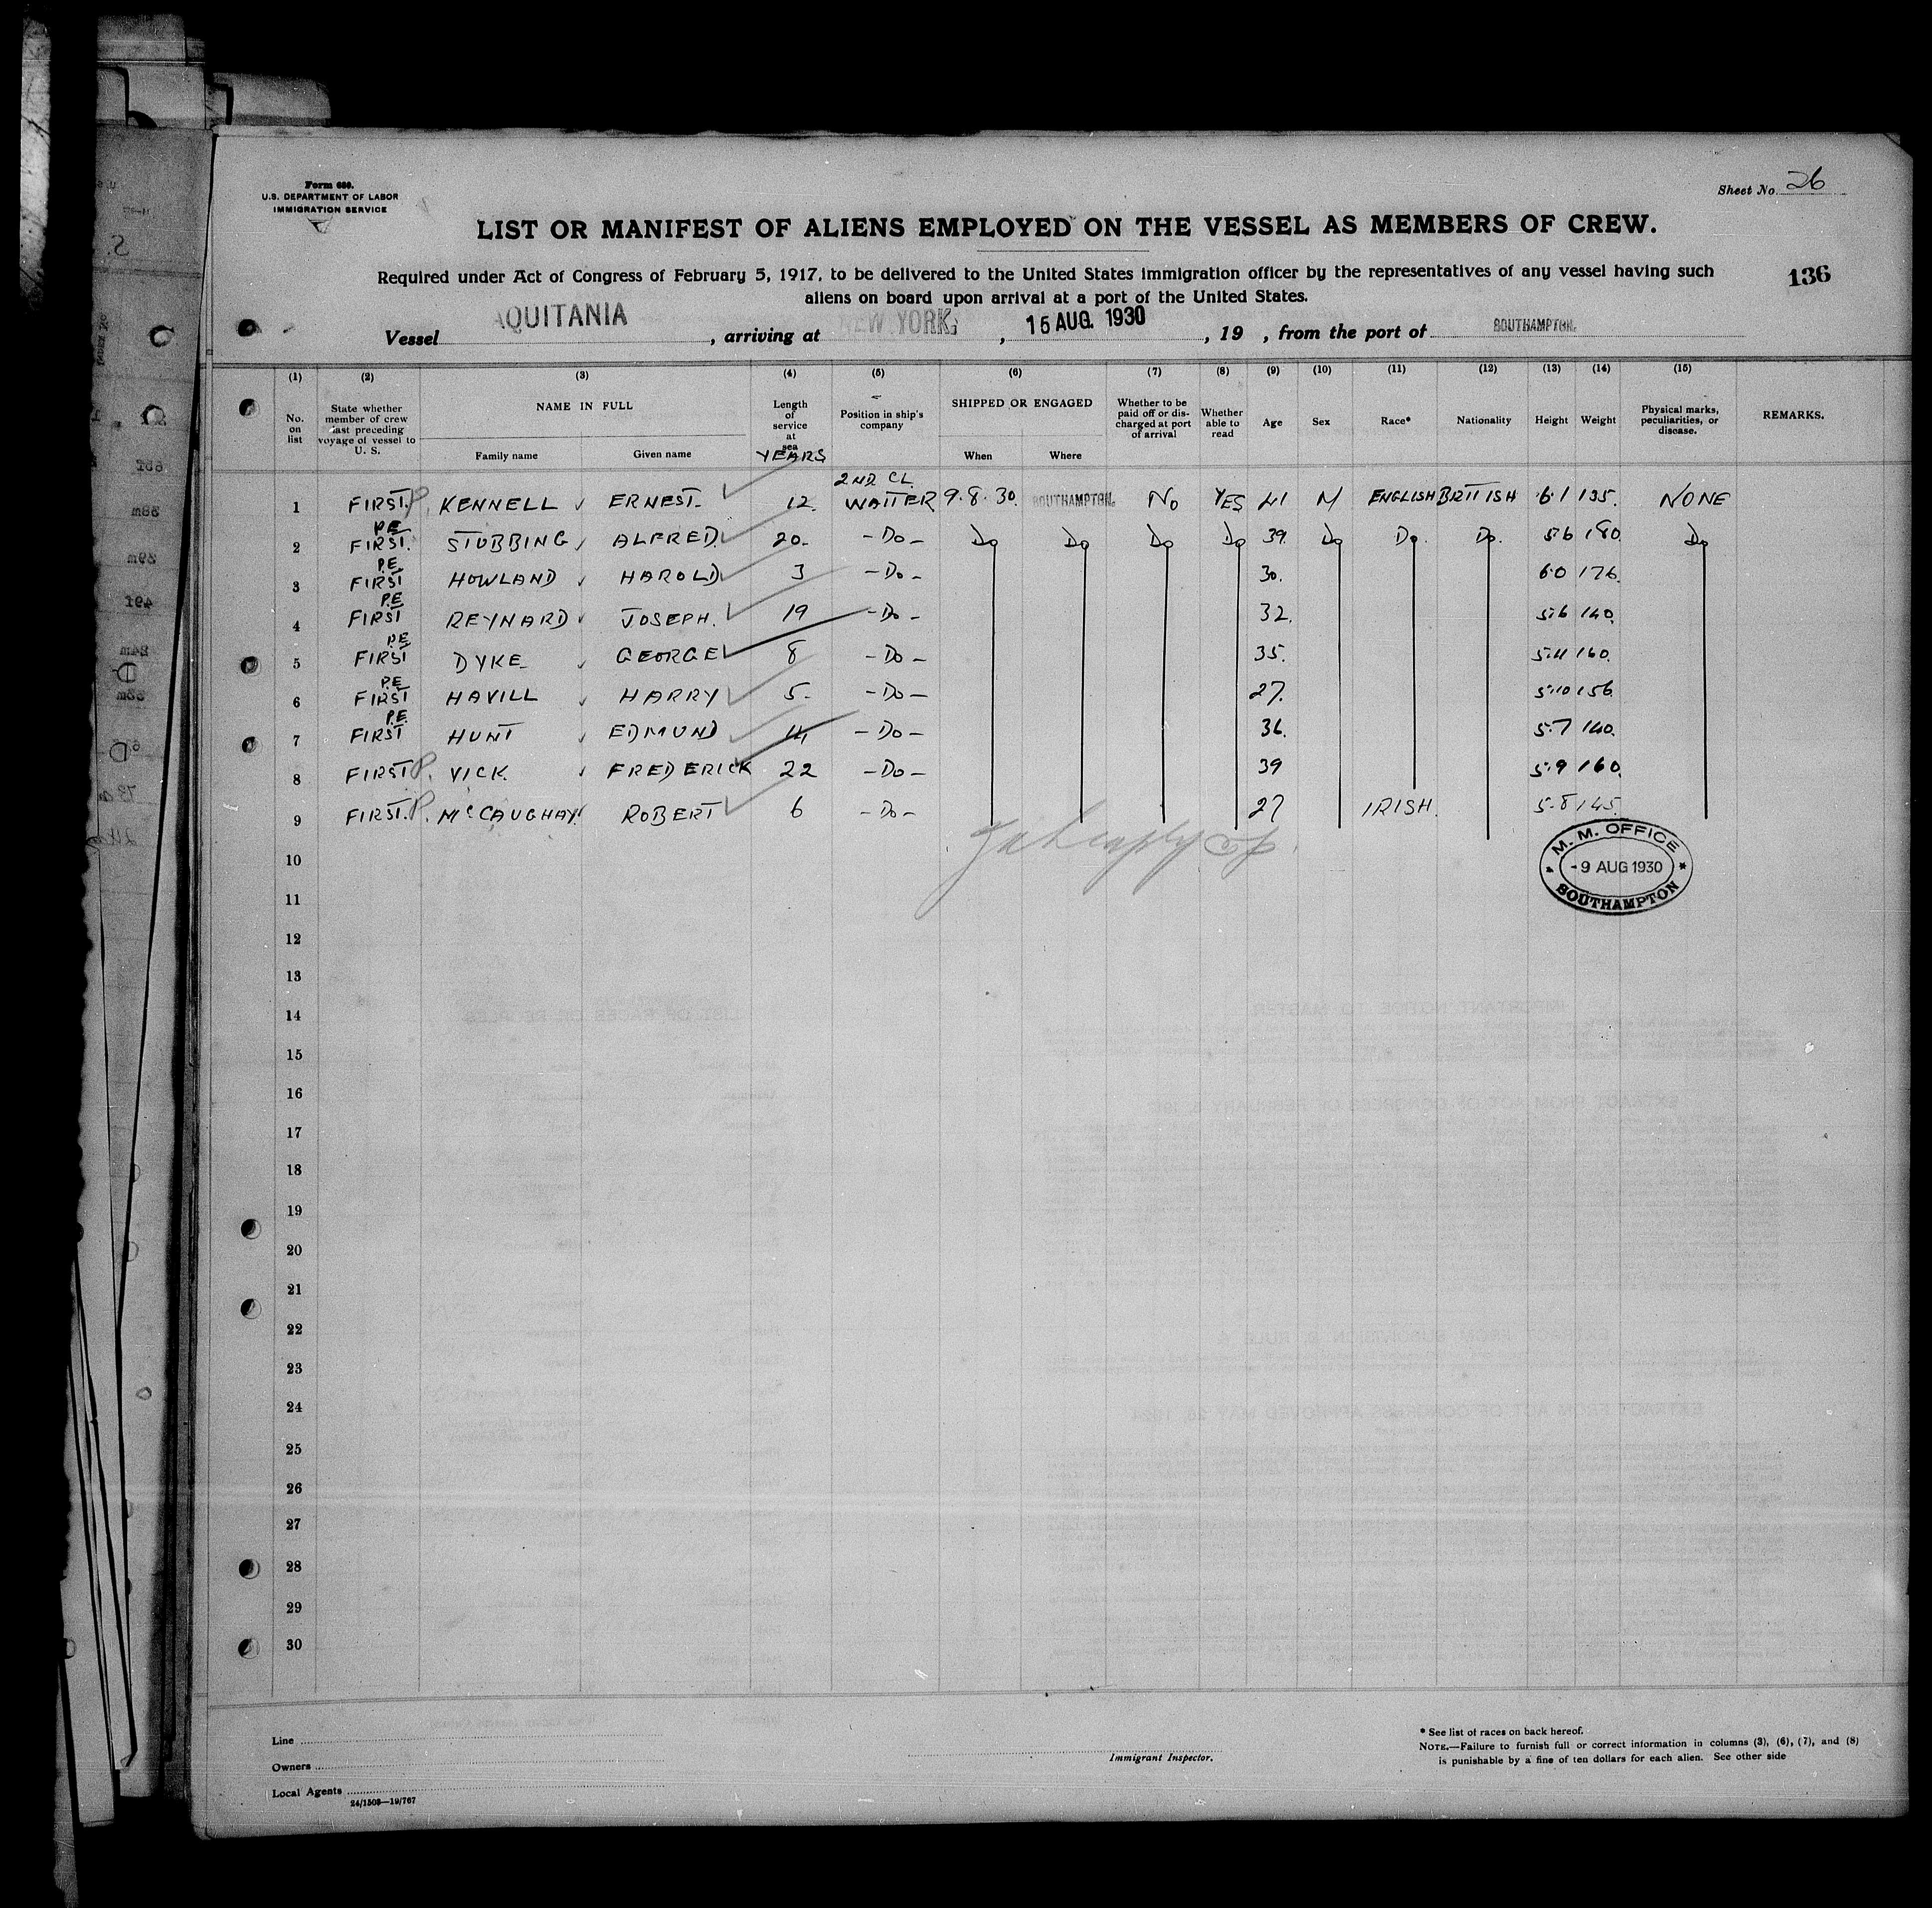 Form 689.
U.S. DEPARTMENT OF LABOR
IMMIGRATION SERVICE
Sheet No. 26
LIST OR MANIFEST OF ALIENS EMPLOYED ON THE VESSEL AS MEMBERS OF CREW.
Required under Act of Congress of February 5, 1917, to be delivered to the United States immigration officer by the representatives of any vessel having such
aliens on board upon arrival at a port of the United States.
136
Vessel AQUITANIA, arriving at NEW YORK, 15 AUG. 1930, 19 , from the port of SOUTHAMPTON.
(1) (2) (3) (4) (5) (6) (7) (8) (9) (10) (11) (12) (13) (14) (15)
No. on list
State whether member of crew last preceding voyage of vessel to U. S.
NAME IN FULL
Family name Given name
Length of service at sea YEARS
Position in ship's company
SHIPPED OR ENGAGED
When Where
Whether to be paid off or discharged at port of arrival
Whether able to read
Age Sex Race* Nationality Height Weight
Physical marks, peculiarities, or disease.
REMARKS.
2ND CL.
1 FIRST. P KENNELL ERNEST. 12. WAITER 9.8.30. SOUTHAMPTON. NO YES 41 M ENGLISH BRITISH 6.1 135. NONE
P.E.
2 FIRST. STUBBING ALFRED. 20. -DO- DO DO DO DO 39. DO DO. DO. 5.6 180. DO
P.E.
3 FIRST HOWLAND HAROLD 3 -DO- 30. 6.0 176.
P.E
4 FIRST REYNARD JOSEPH. 19 -DO- 32. 5.6 140.
P.E
5 FIRST DYKE GEORGE 8 -DO- 35. 5.11 160.
P.E
6 FIRST HAVILL HARRY 5. -DO- 27. 5.10 156
P.E.
7 FIRST HUNT EDMUND 14 -DO- 36. 5.7 140.
8 FIRST P. VICK. FREDERICK 22 -DO- 39 5.9 160.
9 FIRST. P. McCAUGHAY. ROBERT 6 -DO- 27 IRISH. 5.8 145.
10
M. M. OFFICE
-9 AUG 1930
SOUTHAMPTON
11
12
13
14
15
16
17
18
19
20
21
22
23
24
25
26
27
28
29
30
Line
Owners
Local Agents
24/1508—19/767
Immigrant Inspector.
* See list of races on back hereof.
NOTE.—Failure to furnish full or correct information in columns (3), (6), (7), and (8)
is punishable by a fine of ten dollars for each alien. See other side